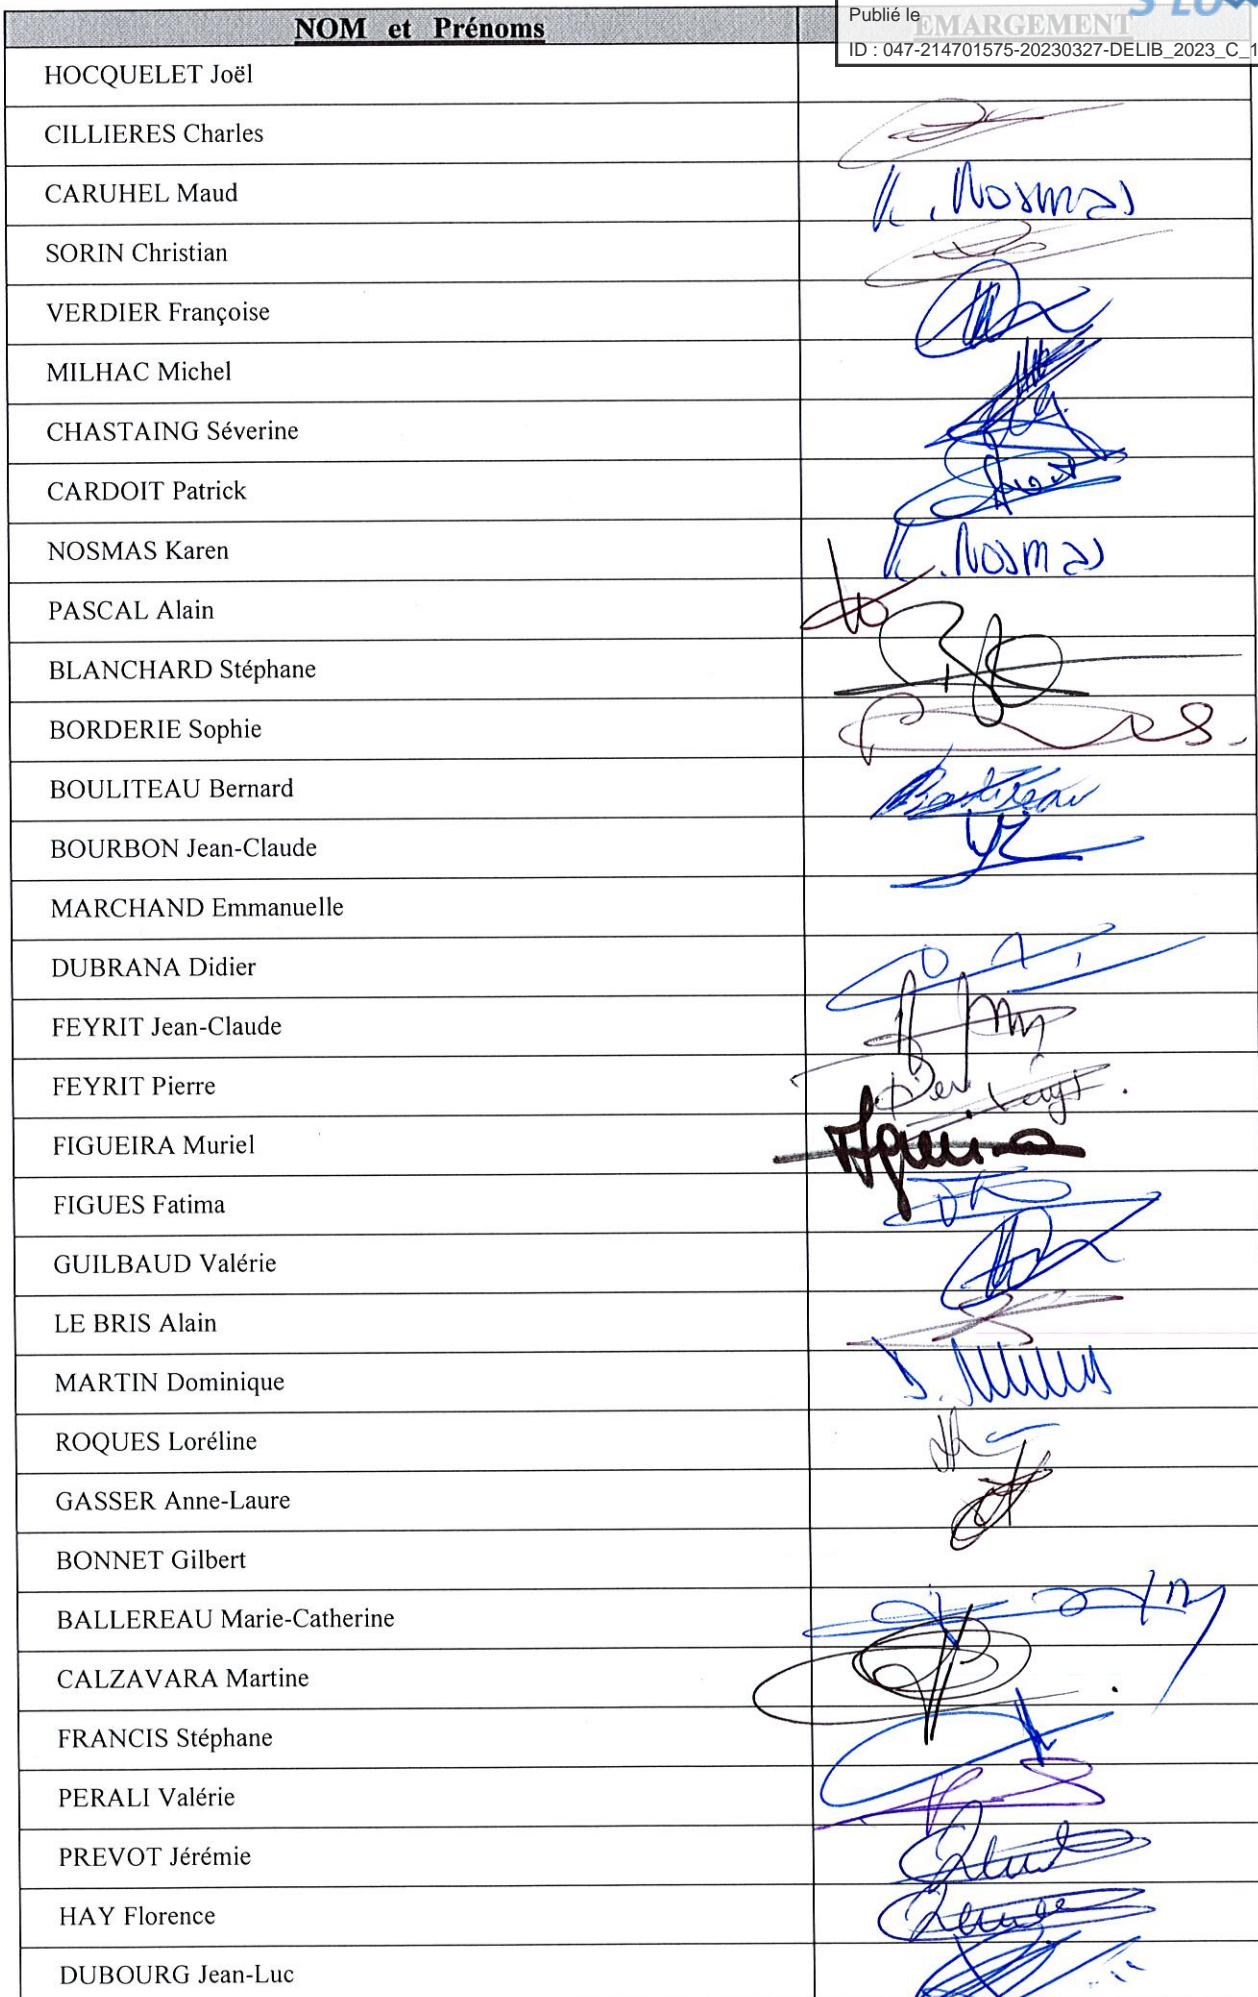 Publié le
S LO
NOM et Prénoms EMARGEMENT
ID : 047-214701575-20230327-DELIB_2023_C_1
HOCQUELET Joël
CILLIERES Charles
CARUHEL Maud K. Nosmas
SORIN Christian
VERDIER Françoise
MILHAC Michel
CHASTAING Séverine
CARDOIT Patrick
NOSMAS Karen K. Nosmas
PASCAL Alain
BLANCHARD Stéphane
BORDERIE Sophie
BOULITEAU Bernard Bouliteau
BOURBON Jean-Claude
MARCHAND Emmanuelle
DUBRANA Didier
FEYRIT Jean-Claude
FEYRIT Pierre
FIGUEIRA Muriel
FIGUES Fatima
GUILBAUD Valérie
LE BRIS Alain
MARTIN Dominique
ROQUES Loréline
GASSER Anne-Laure
BONNET Gilbert
BALLEREAU Marie-Catherine
CALZAVARA Martine
FRANCIS Stéphane
PERALI Valérie
PREVOT Jérémie
HAY Florence
DUBOURG Jean-Luc